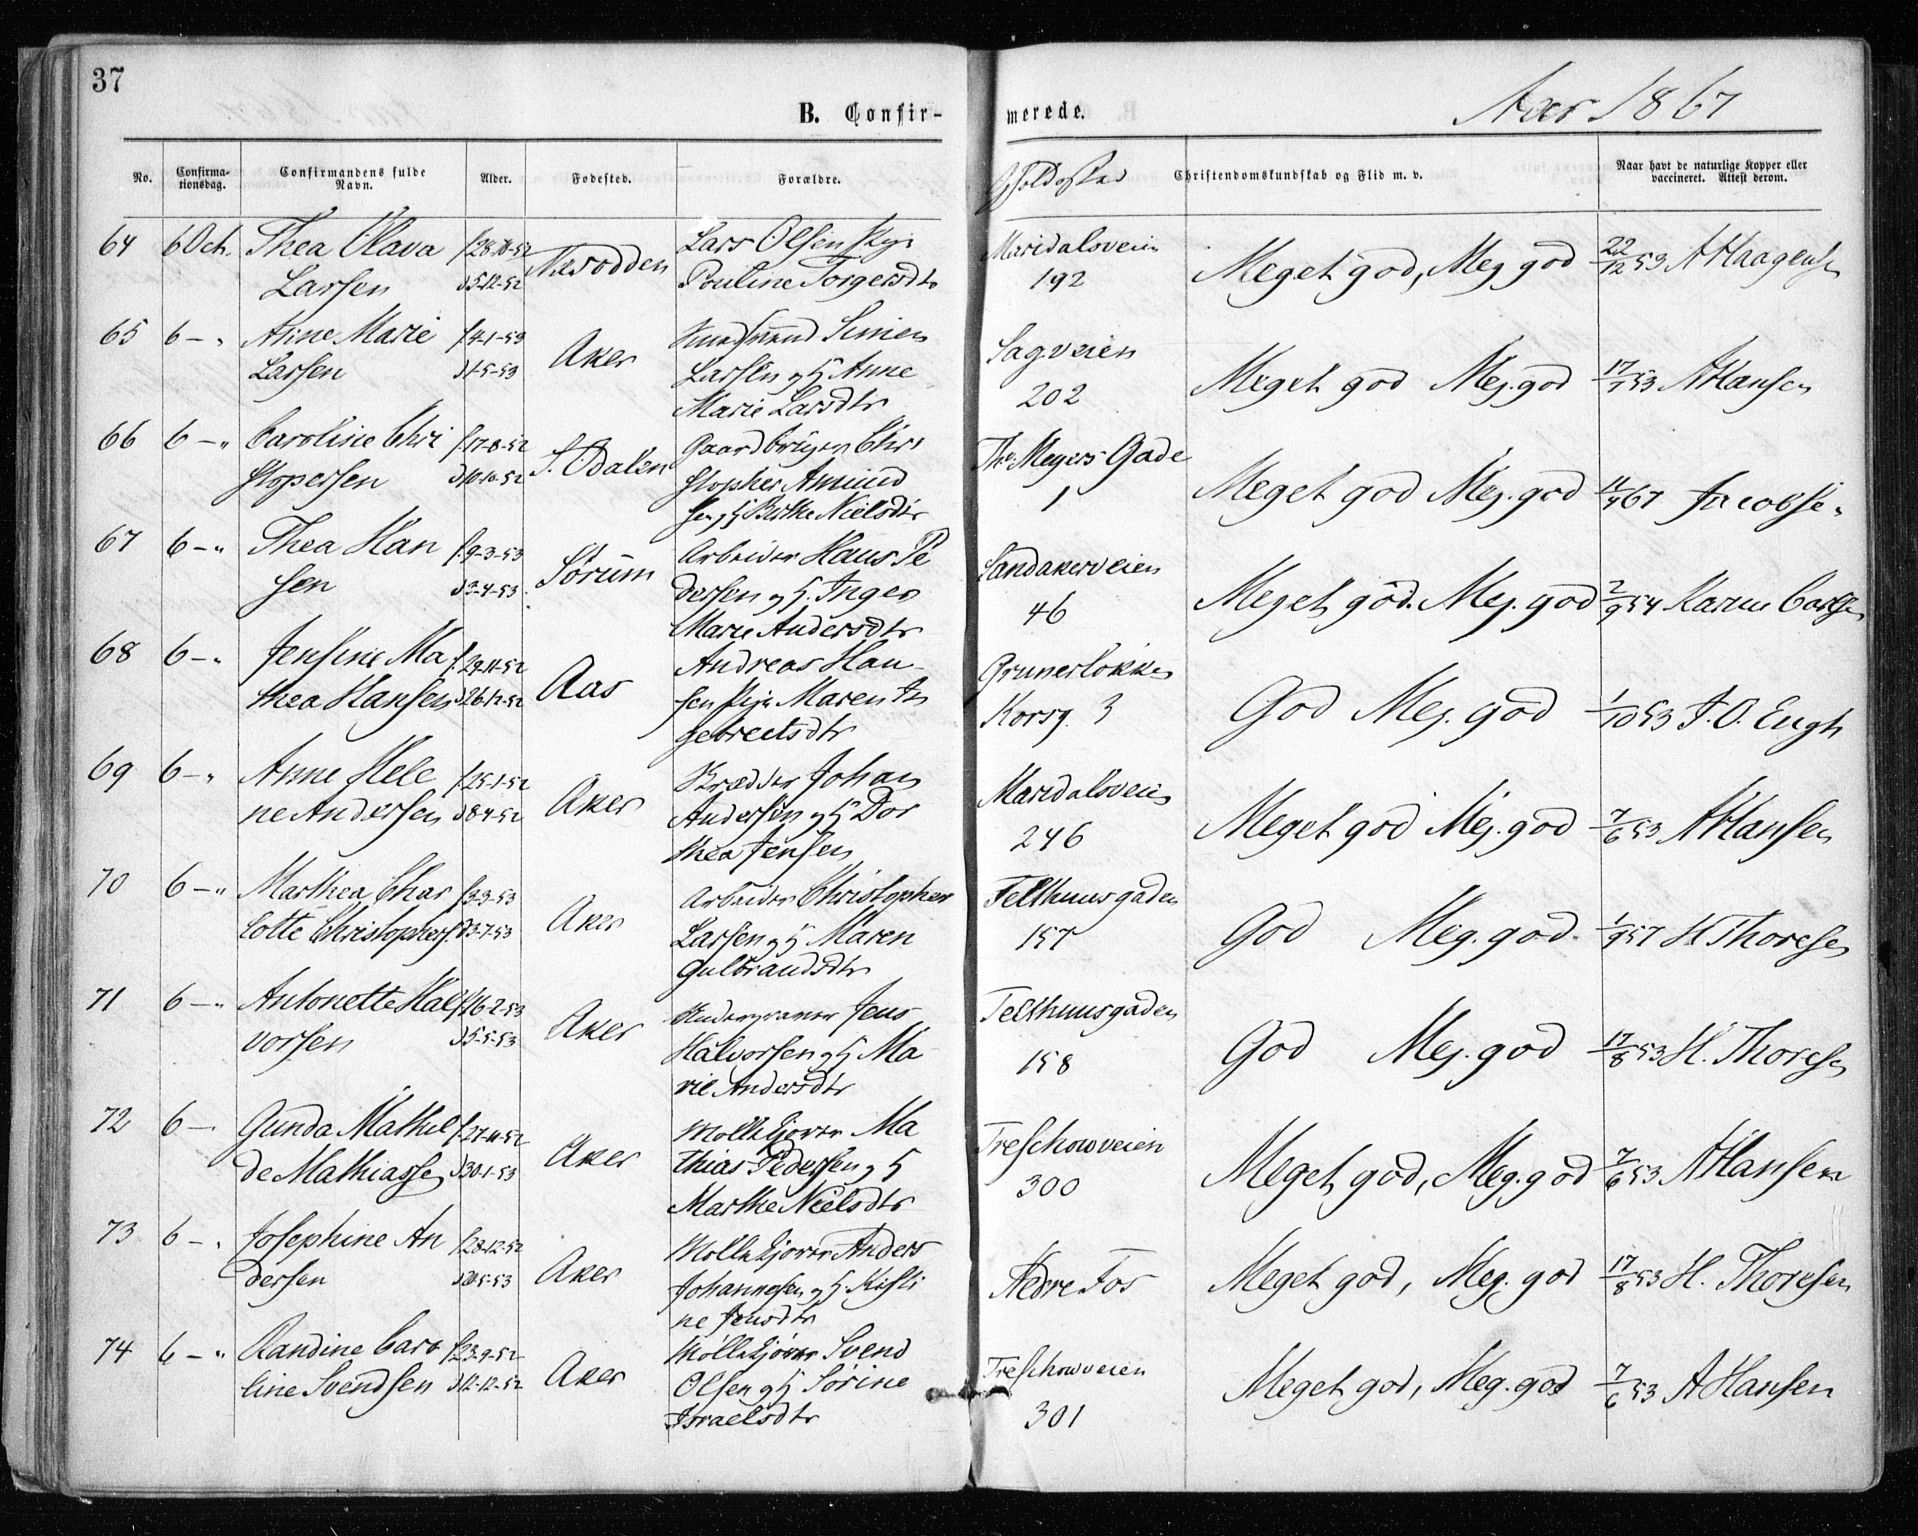 37
B. Confir-
merede.
Aar 1867
No.
Confirma-
tionsdag.
Confirmandens fulde
Navn.
Alder.
Fødested.
Forældre.
Opholdssted
Christendomskundskab og Flid m. v.
Naar havt de naturlige Kopper eller
vaccineret. Attest derom.
64 6 Oct. Thea Olava f. 28-10-52 Nesodden Lars Olsen Maridalsveien Meget god, Meg god 22/12 53 A Haagensen
Larsen d 5-12-52 Pouline Torgersdtr 192
65 6 – " Aline Marie f 4-1-53 Aker Simen Sagveien Meget god Meg. god 17/7 53 A Hansen
Larsen d 1-5-53 Larsen og H Anne 202
Marie Larsdtr
66 6 – " Caroline Chri f. 17-8-52 S. Odalen Gaardbruger Chri Ths. Meyers Gade Meget god Meg. god 11/4 67 Jacobsen
stopersen d 10-10-52 stopher Amund 1
sen og H Berthe Nielsdtr
67 6 – " Thea Han f. 9-3-53 Sørum Arbeider Hans Pe Sandakerveien Meget god. Meg. god 2/9 54 Karine Carlsen
sen d 3-4-53 dersen og H. Inger 46
Marie Andersdtr
68 6 – " Jensine Ma f. 29-11-52 Aas Andreas Han- Grünerløkken God Meg. god 1/10 53 J. O. Engh
thea Hansen d 26-12-52 sen Maren In Korsg. 3
gebretsdtr
69 6 – " Anne Hele f. 25-1-52 Aker Johan Maridalsveien Meget god Meg. god 7/6 53 A Hansen
ne Andersen d 8-4-52 Andersen og H Dor 246
thea Jensen
70 6 – " Marthea Char f 3-3-53 Aker Arbeider Christopher Felthuusgaden God Meg. god. 1/9 57 H Thoresen
lotte Christophers. d 3-7-53 Larsen og H Maren 157
Gulbrandsdtr
71 6 – " Antonette Hal f 16-2-53 Aker Jens Felthuusgaden God Meg. god 17/8 53 H. Thoresen
vorsen d 5-5-53 Halvorsen og H Ma- 158
rie Andersdtr
72 6 – Gunda Mathil f. 27-11-52 Aker Møllekjører Ma Treschowveien Meget god, Meg. god 7/6 53 A Hansen
de Mathiassen d 30-1-53 thias Pedersen og H 300
Marthe Nielsdtr
73 6 – " Josephine An f. 28-12-52 Aker Møllekjører Anders Nedre Fos Meget god, Meg. god 17/8 53 H. Thoresen
dersen d 20-5-53 Johannesen og H. Kisti
ne Jonsdtr
74 6 – " Randine Caro f 23-9-52 Aker Møllekjører Svend Treschowveien Meget god, Meg. god 7/6 53 A Hansen
line Svendsen d 12-12-52 Olsen og H Sørine 301
Israelsdtr